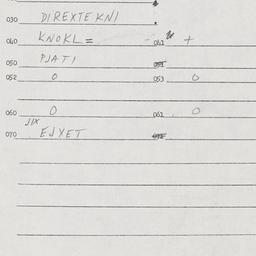 030 DIREXTEKNI
040 KNOKL= 041 +
050 PJATI 051
052 0 053 0
060 0 061 0
JIX
070 EJYET